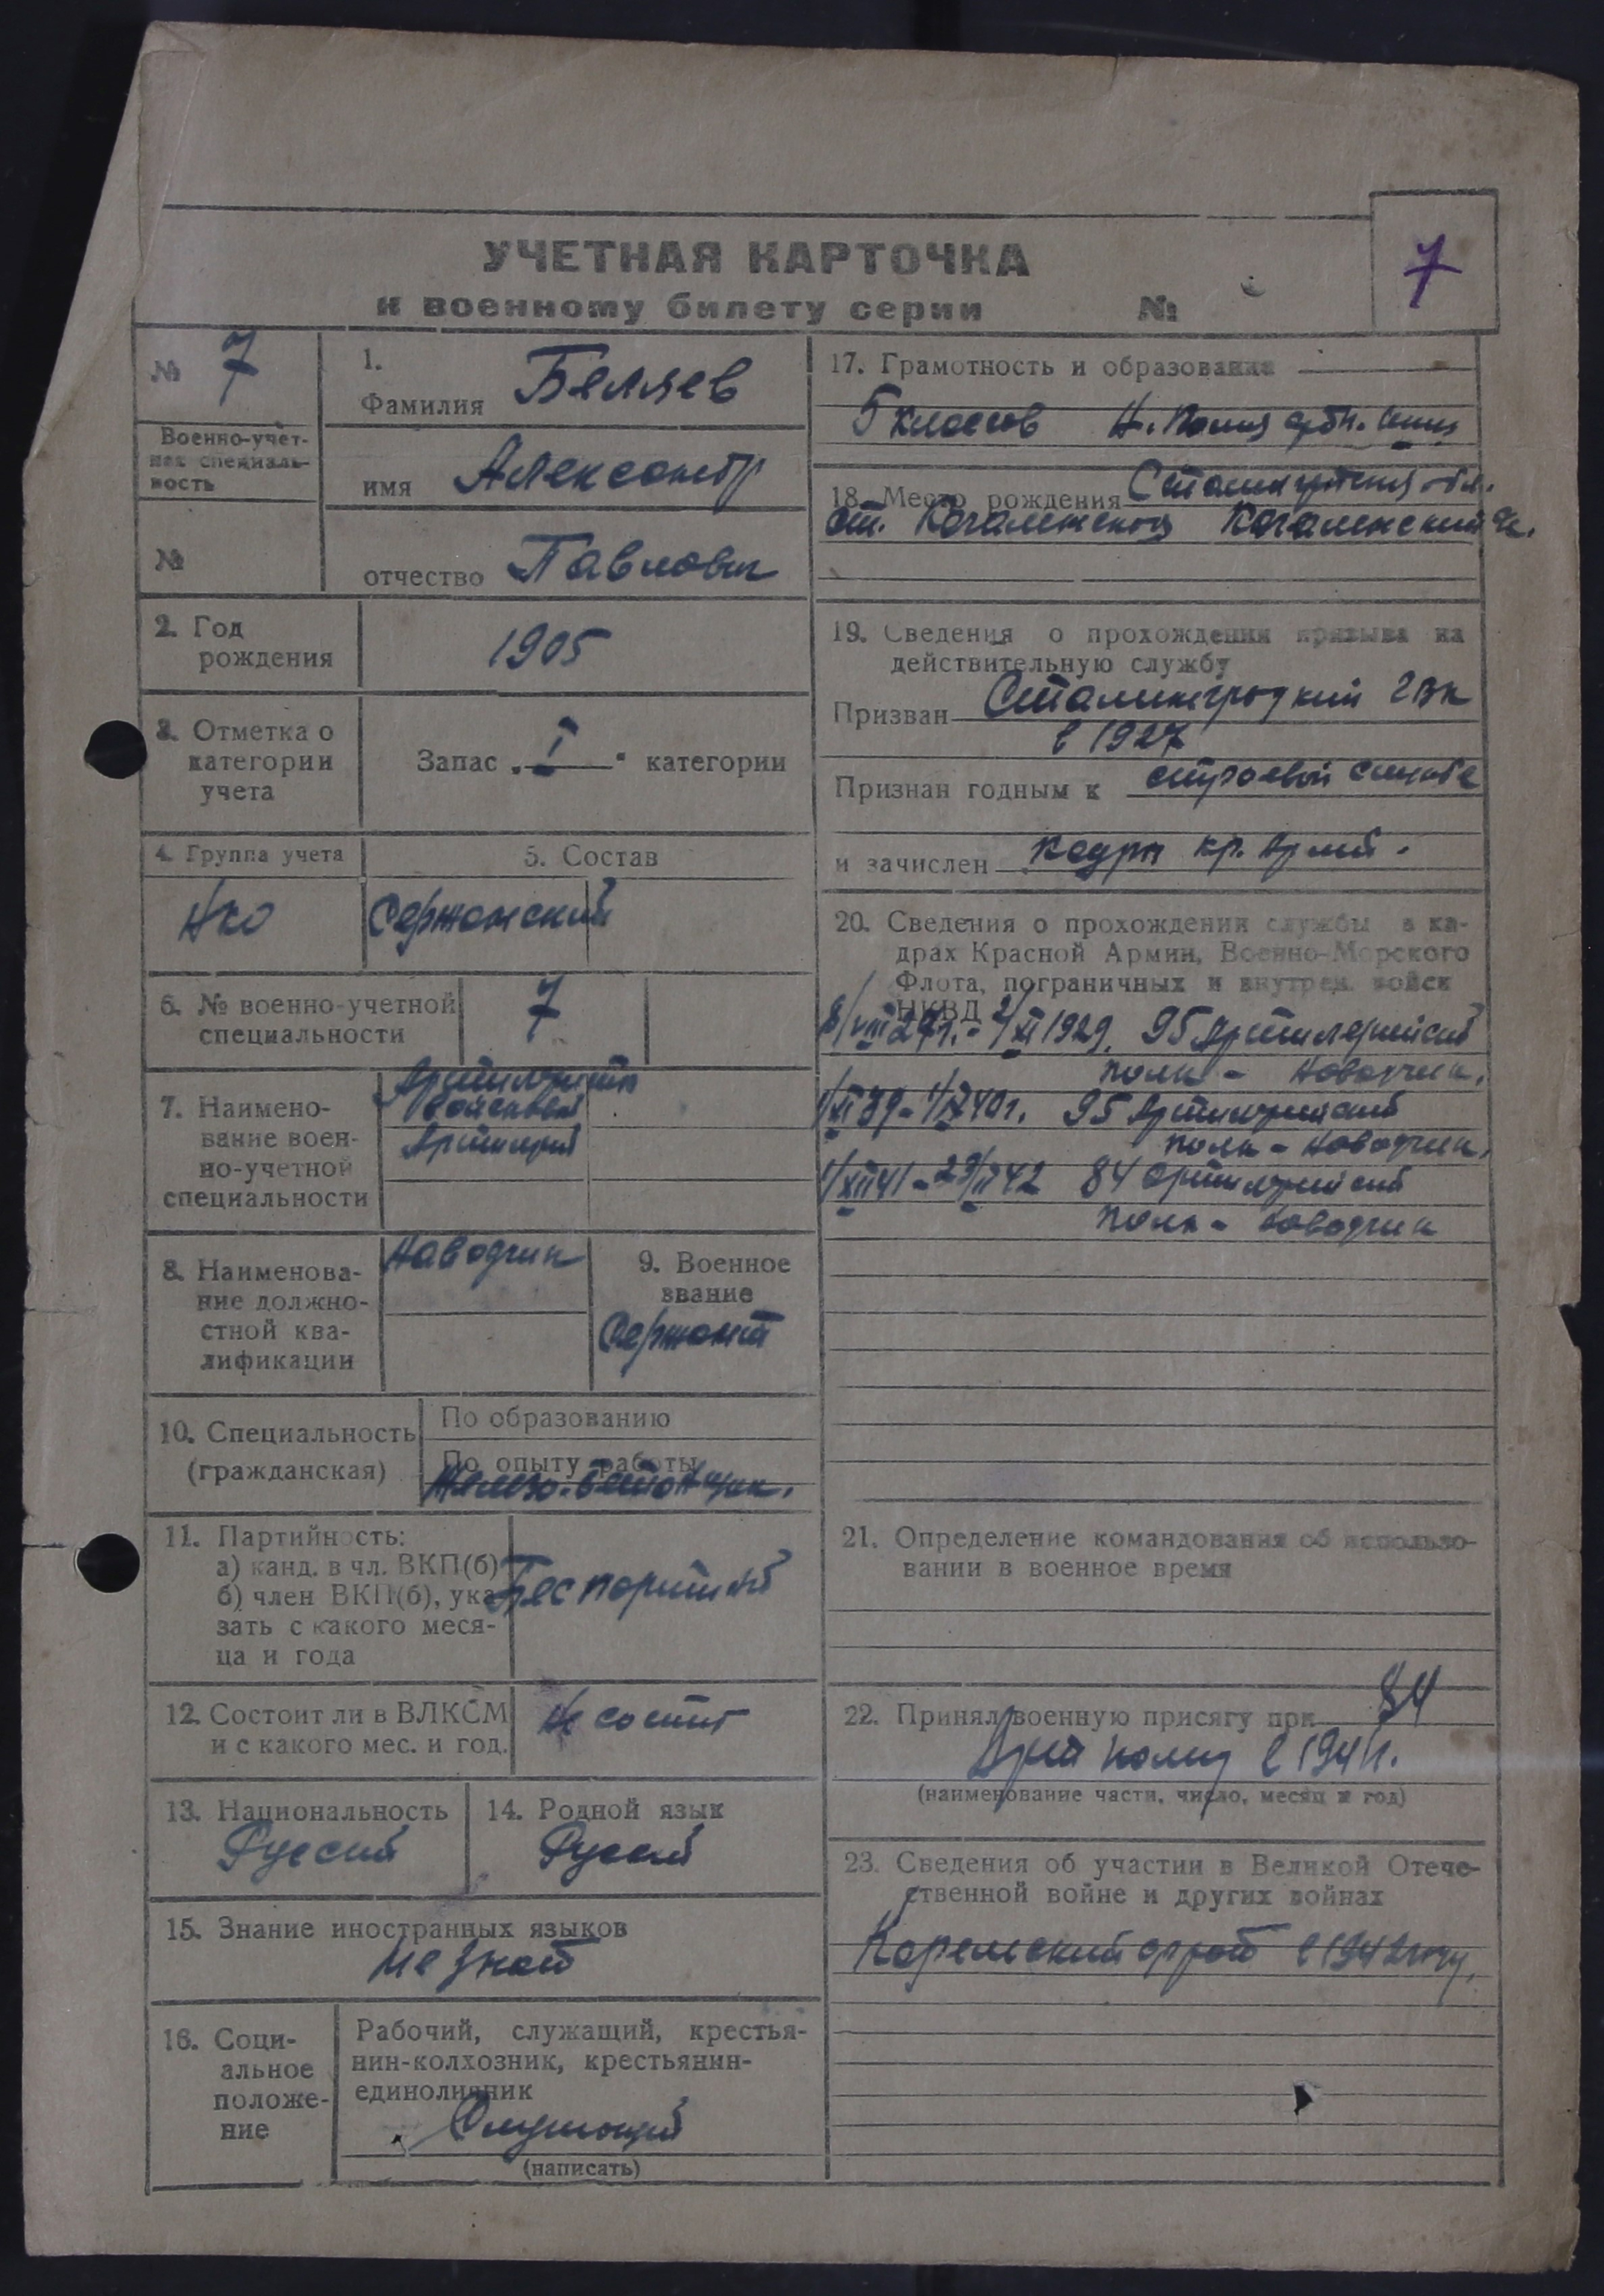 7
УЧЕТНАЯ КАРТОЧКА
к военному билету серии №
№ 7
Военно-учет-
ная специаль-
ность
№
1.
Фамилия Беляев
имя Александр
отчество Павлович
2. Год
рождения
1905
3. Отметка о
категории
учета
Запас „I“ категории
4. Группа учета
НКО
5. Состав
Сержанский
6. № военно-учетной
специальности
7
7. Наимено-
вание воен-
но-учетной
специальности
Артиллеристы
войсковой
Артиллерий
8. Наименова-
ние должно-
стной ква-
лификации
Наводчик
9. Военное
звание
Сержант
10. Специальность
(гражданская)
По образованию
По опыту работы
Железо-бетонщик.
11. Партийность:
а) канд. в чл. ВКП(б)
б) член ВКП(б), ука-
зать с какого меся-
ца и года
Беспартийный
12. Состоит ли в ВЛКСМ
и с какого мес. и год.
Не состоит
13. Национальность
Русский
14. Родной язык
Русский
15. Знание иностранных языков
Не знает
16. Соци-
альное
положе-
ние
Рабочий, служащий, крестья-
нин-колхозник, крестьянин-
единоличник
Служащий
(написать)
17. Грамотность и образование
5 классов
18. Место рождения Сталинградская обл.
ст.
19. Сведения о прохождении призыва на
действительную службу
Призван Сталинградский ГВК
в 1927
Признан годным к строевой службе
и зачислен кадры Кр. Армий.
20. Сведения о прохождении службы в ка-
драх Красной Армии, Военно-Морского
Флота, пограничных и внутрен. войск
НКВД
8/VIII 27г. - 2/XI 1929. 95 Артилерийский
полк - Наводчик.
1/XI 39 - 1/IX 40г. 95 Артилерийский
полк - Наводчик.
1/XII 41 - 23/II 42 84 Артилерийский
полк - Наводчик
21. Определение командования об использо-
вании в военное время
22. Принял военную присягу при 84
Арт полку в 1941г.
(наименование части, число, месяц и год)
23. Сведения об участии в Великой Отече-
ственной войне и других войнах
Карельский фронт в 1942 году.